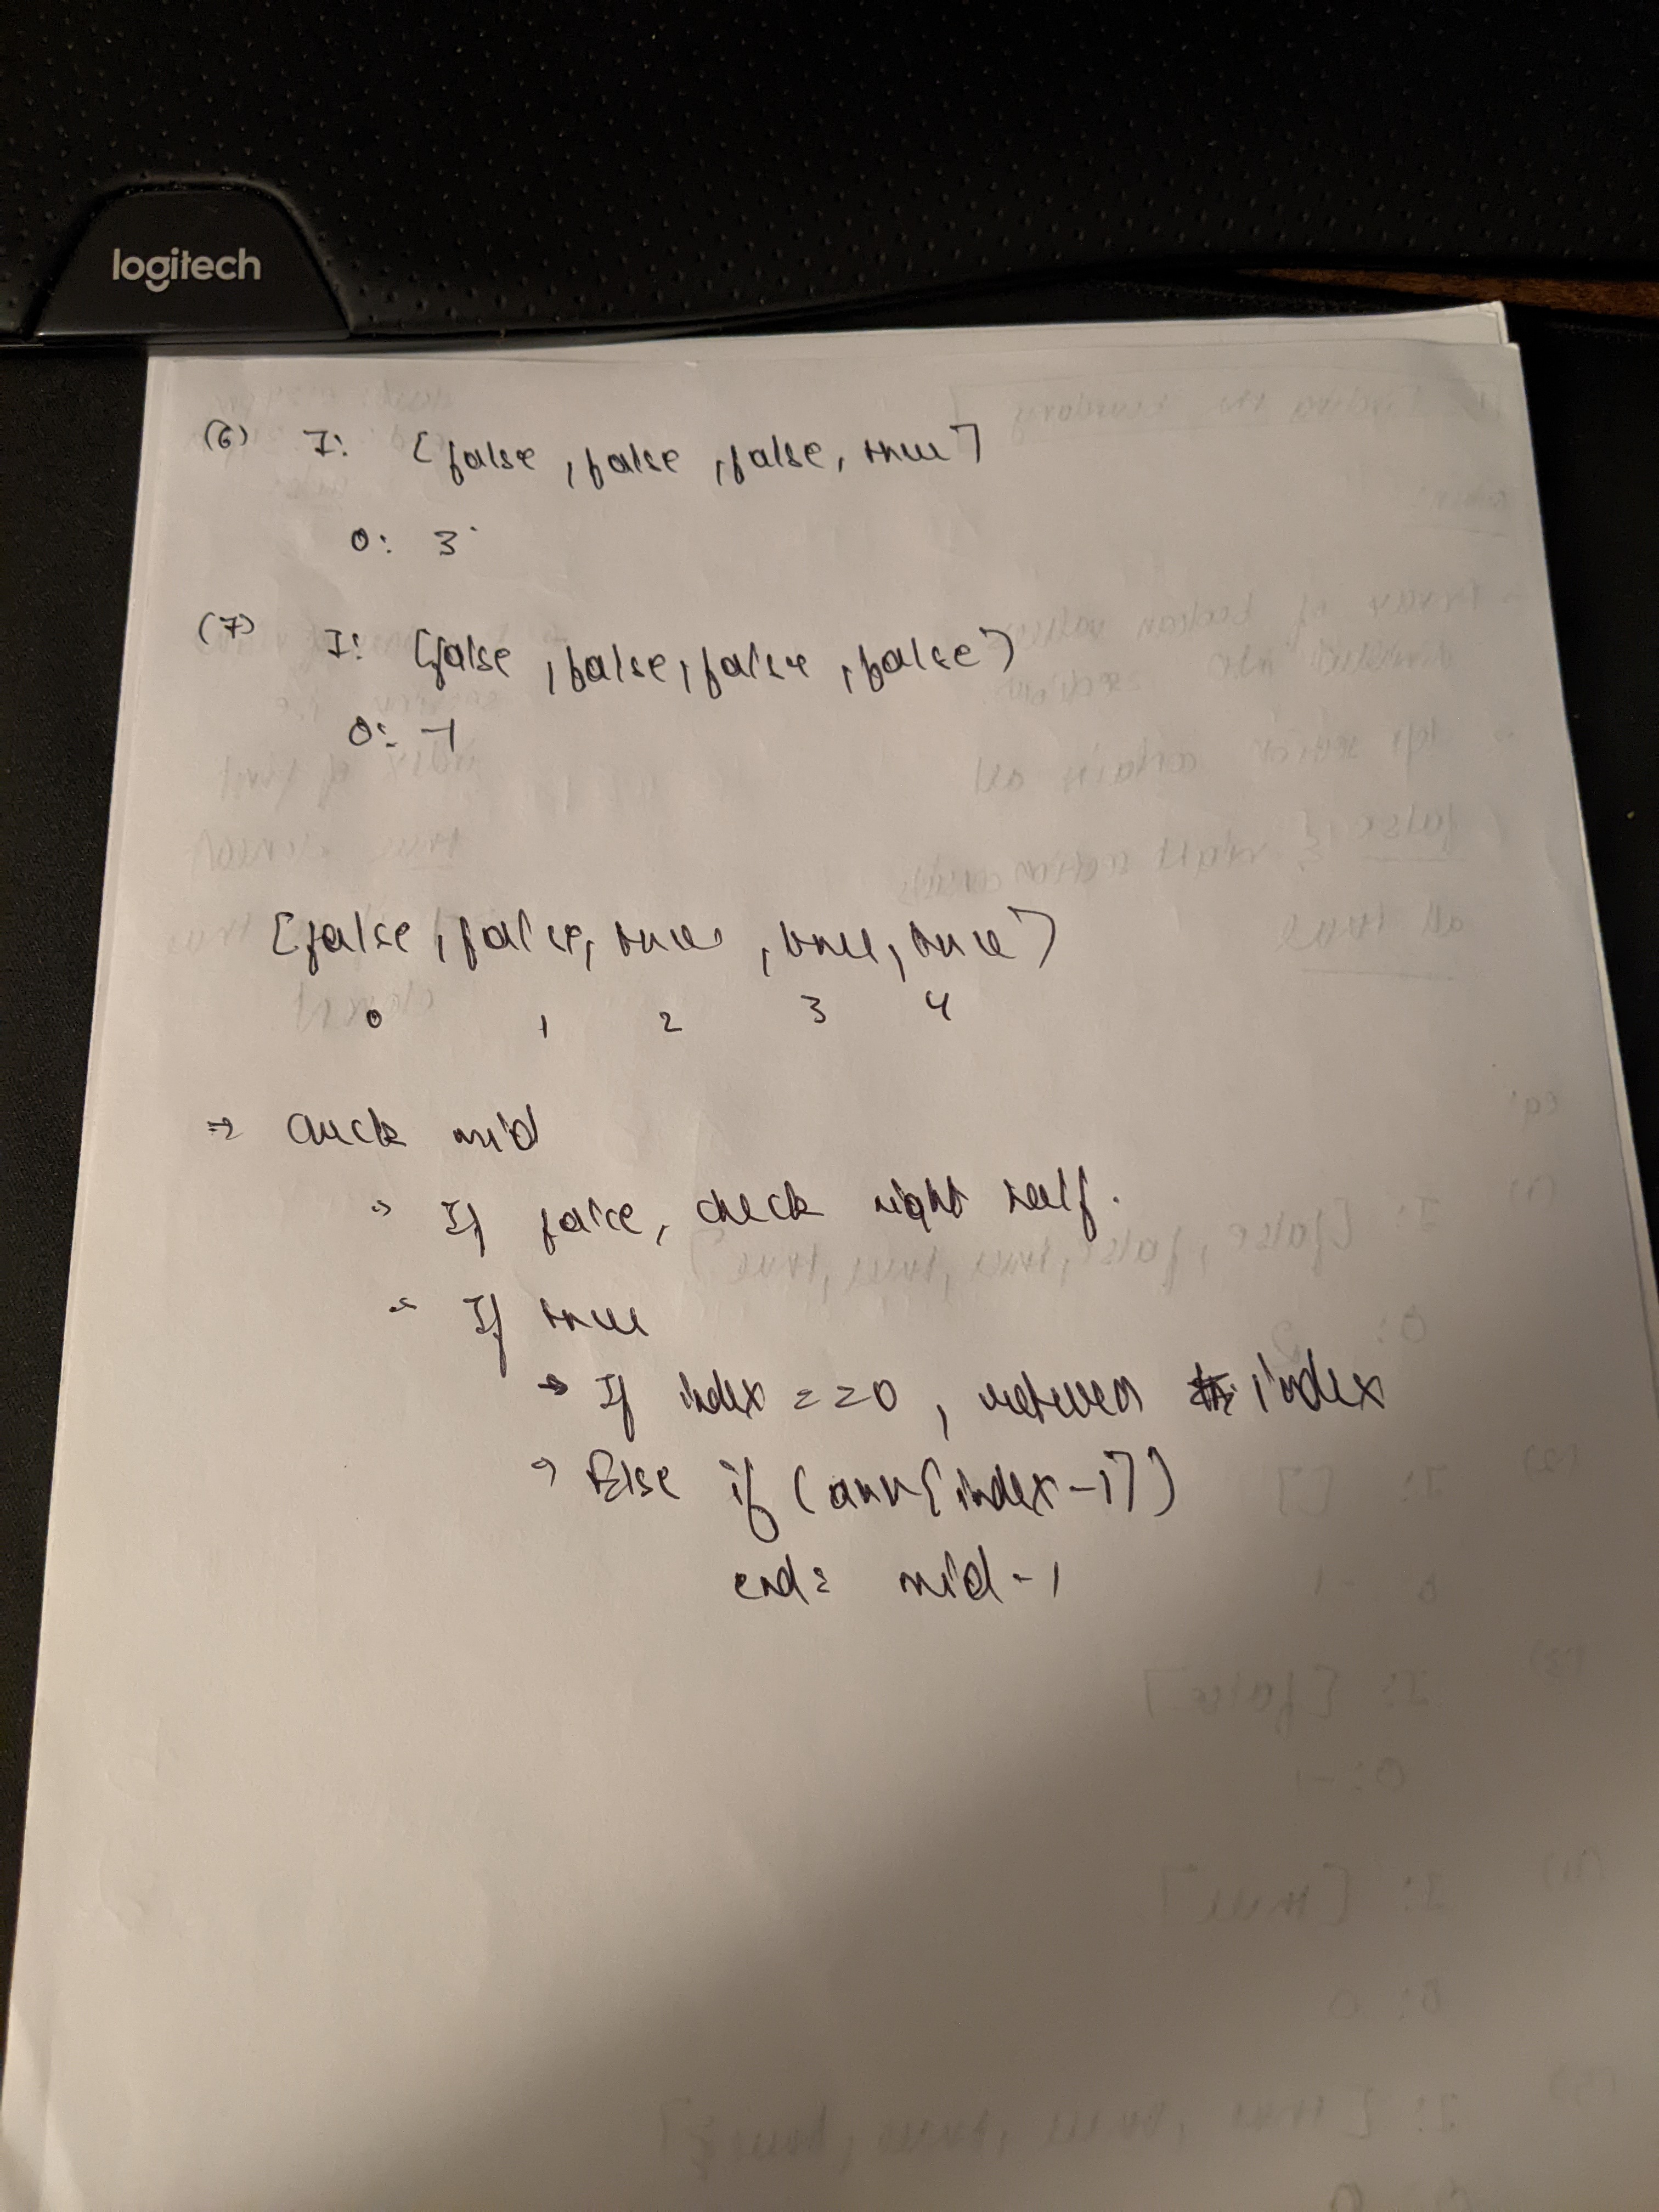 logitech
(6) I: [false, false, false, true]
O: 3
(7) I: [false, false, false, false]
O: -1
[false, false, true, true, true]
0 1 2 3 4
→ check mid
→ If false, check right half.
→ If true
→ If index == 0, return index
→ Else if (arr[index-1])
end = mid-1